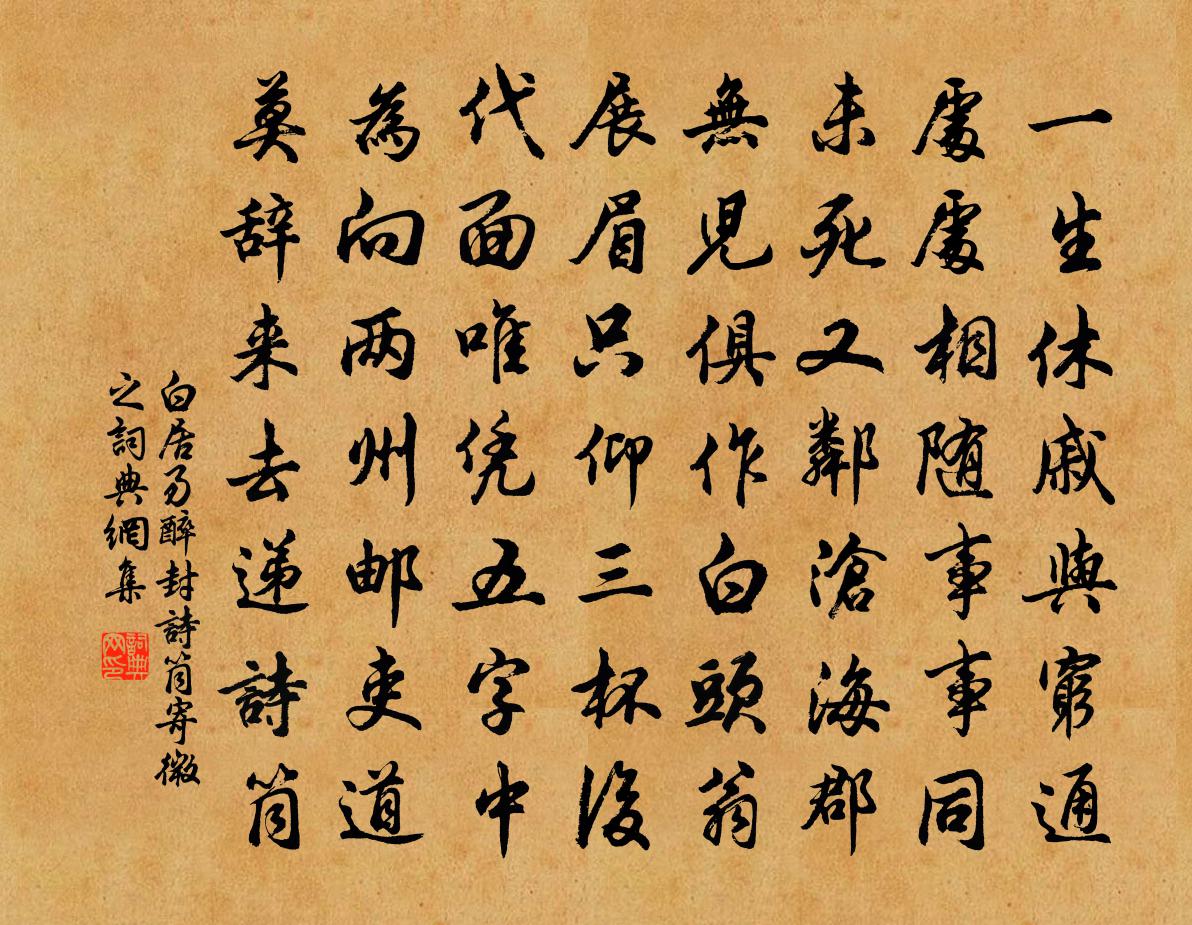 一生休戚與窮通
處處相随事事同
未死又鄰滄海郡
無児俱作白頭翁
展眉只仰三杯後
代面唯凭五字中
為向两州邮吏道
莫辞来去递詩筒
白居易醉封詩筒寄微
之詞典網集
詞典网印